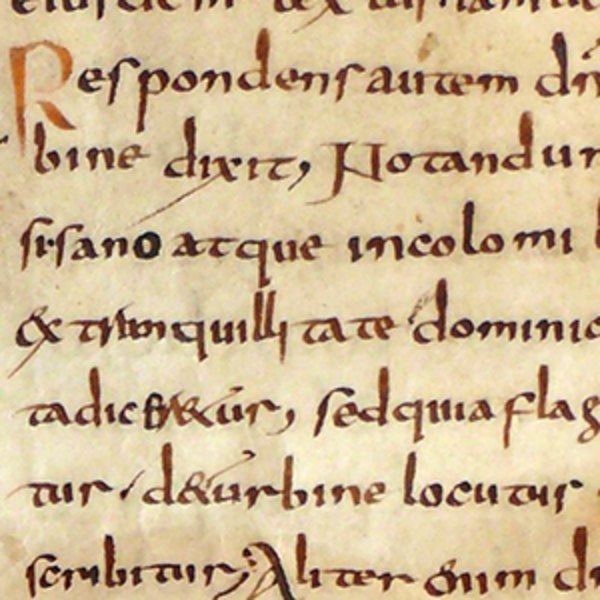 Respondens autem dn̄
bine dixit, Notandum
si sano atque incolomi
ex tranquillitate dominic
sed quia flag
tur. de turbine locutus
scribitur; Aliter enim